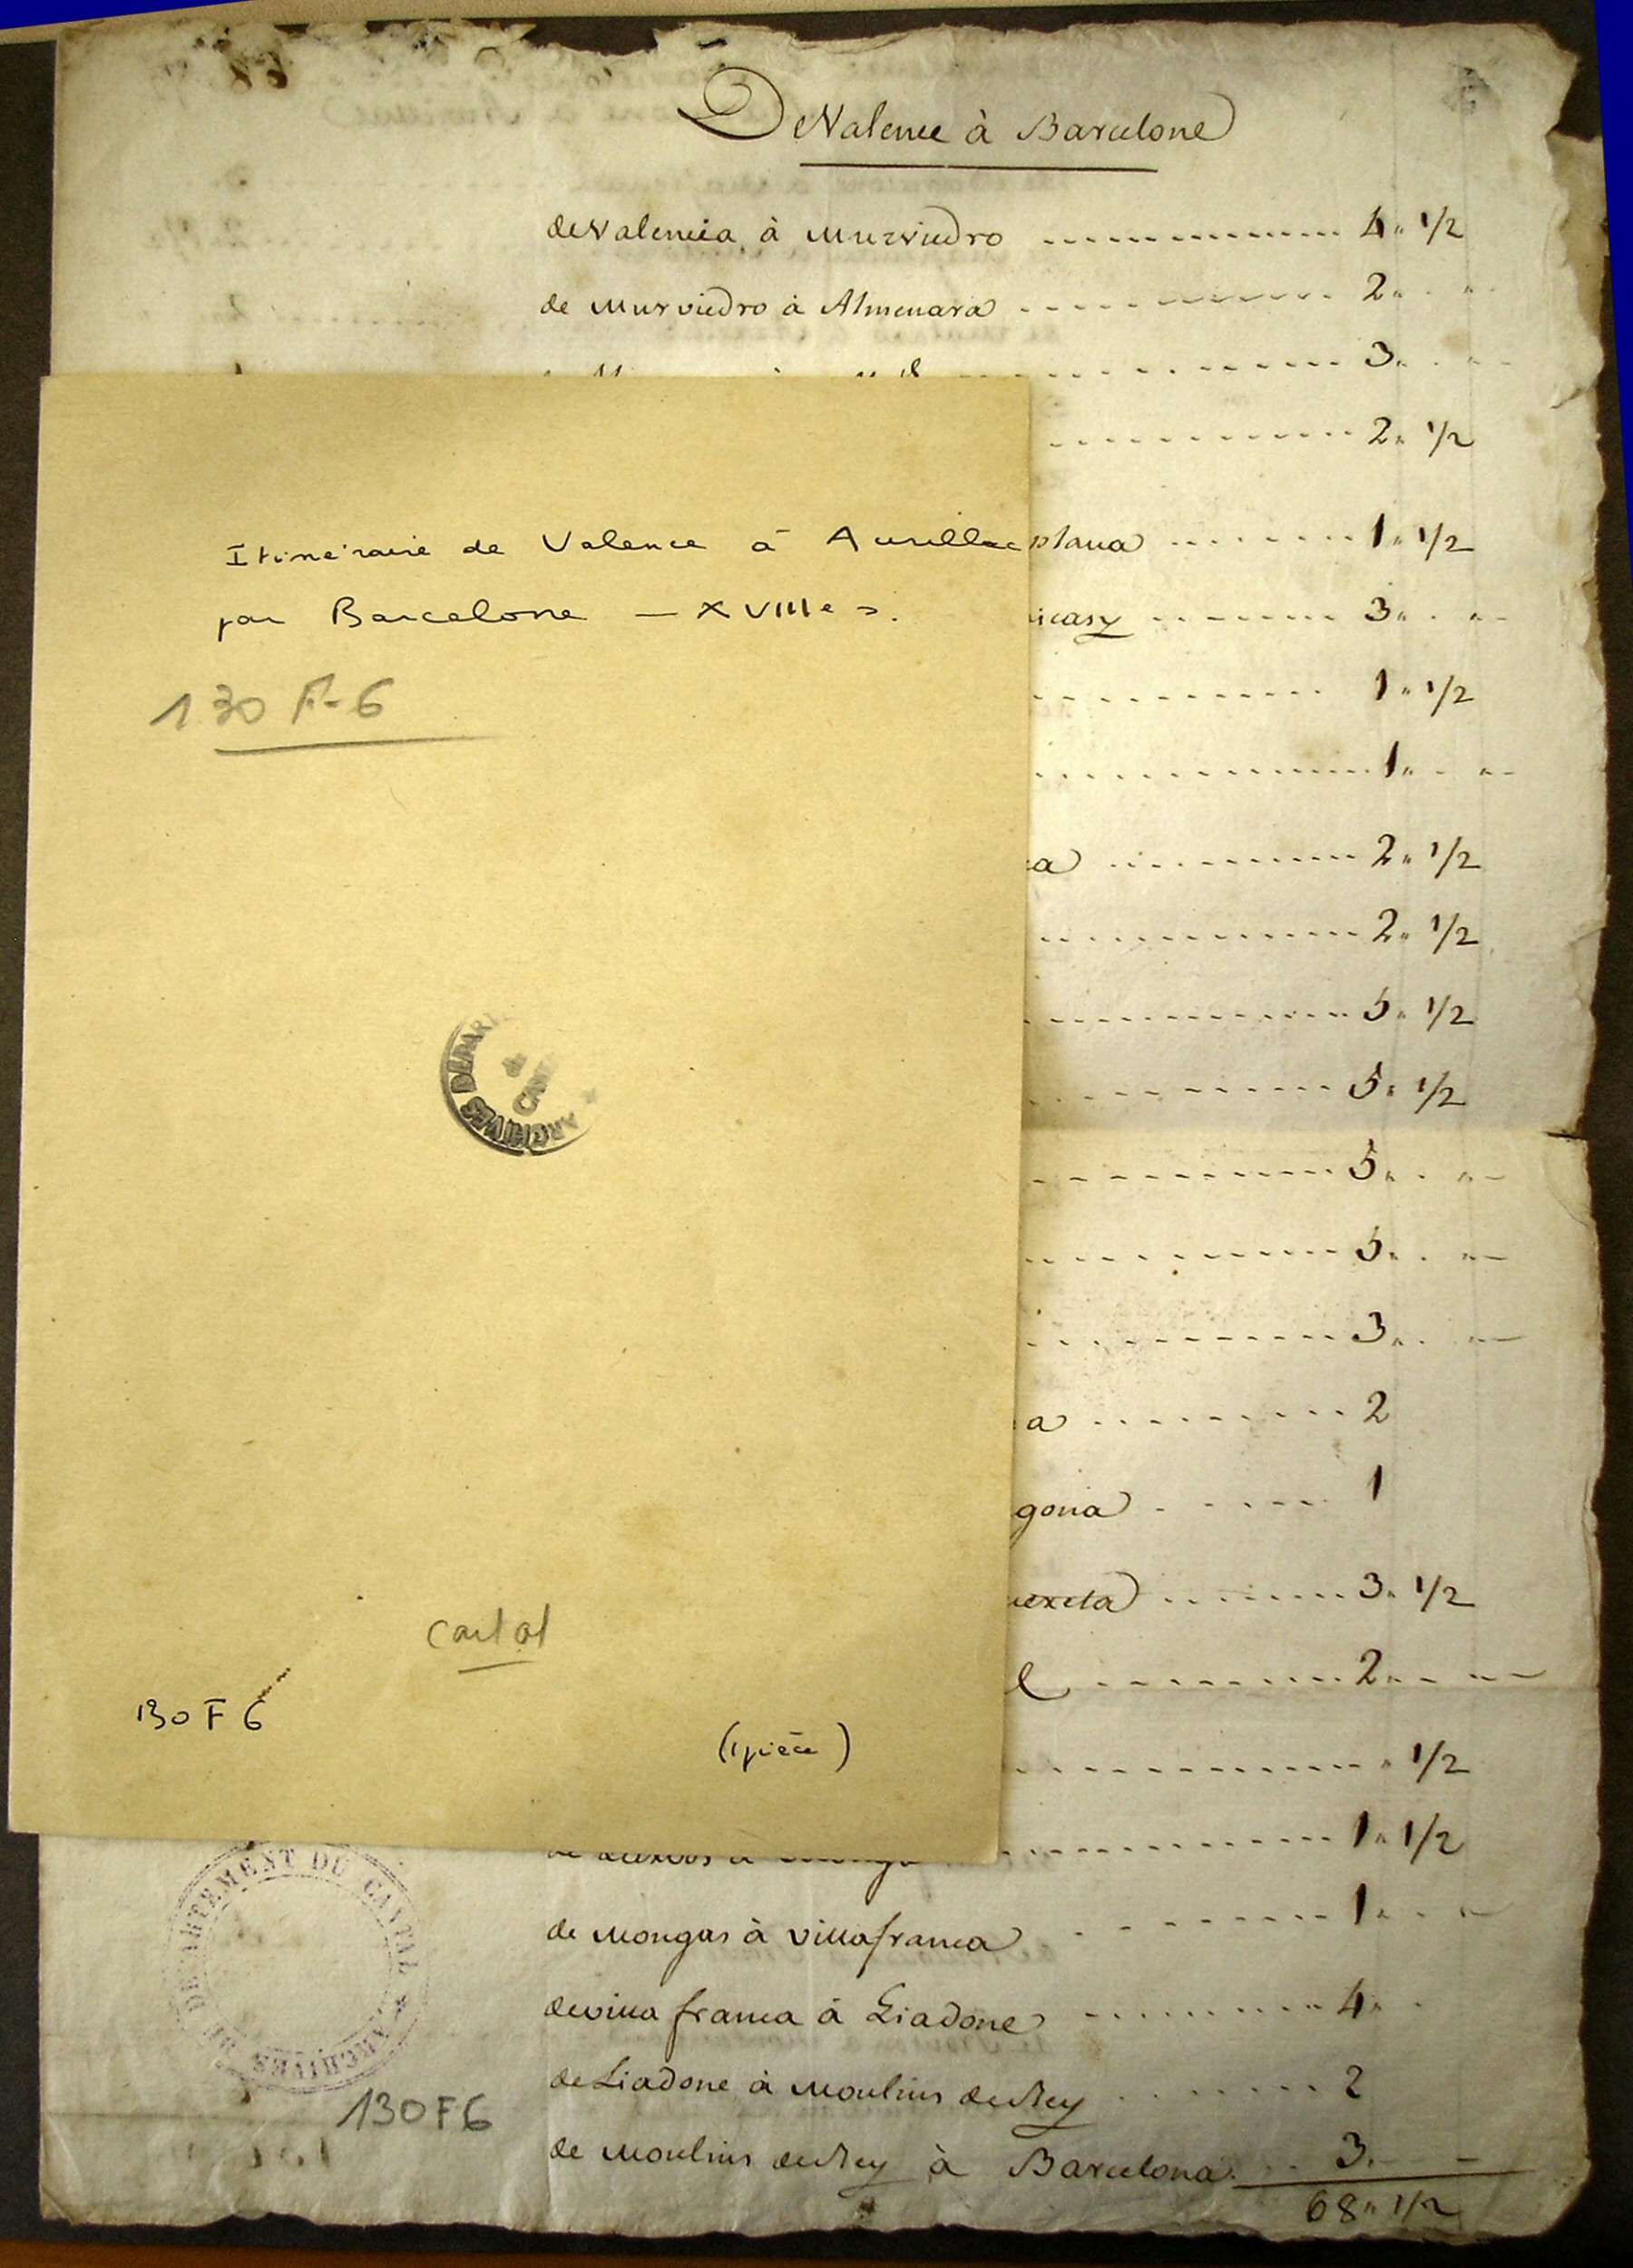 De Valence à Barcelone
de Valencia à Murviedro 4 " 1/2
de Murviedro à Almenara 2 "
3 "
2 " 1/2
plana 1 " 1/2
icasy 3 "
1 " 1/2
1 "
a 2 " 1/2
2 " 1/2
5 " 1/2
5 " 1/2
5 "
5 "
3 "
a 2
gona 1
3 " 1/2
l 2 "
" 1/2
1 " 1/2
de Mongas à villafranca 1 "
de villa franca à Liadone 4 "
de Liadone à Moulins de Rey 2
de Moulins de Rey à Barcelona 3
68 " 1/2
Itinéraire de Valence à Aurillac
par Barcelone — XVIIIe s.
130 F-6
ARCHIVES DEPART
du
CAN
Cantal
130 F 6
(1 pièce)
DEPARTEMENT DU CANTAL * ARCHIVES
130 F 6